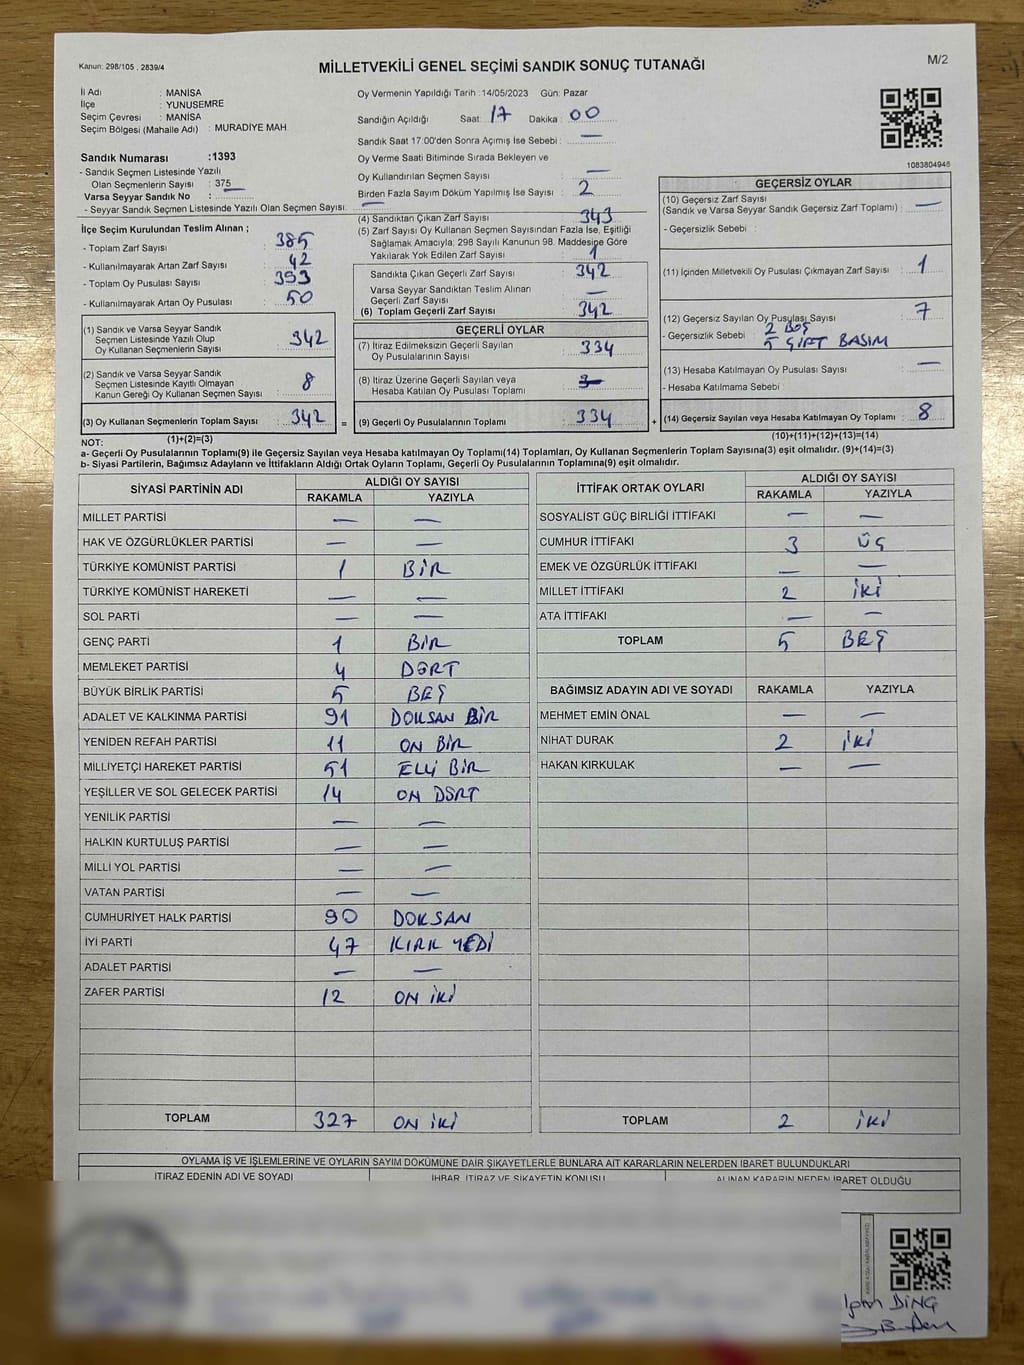 Kanun: 298/105 , 2839/4
MİLLETVEKİLİ GENEL SEÇİMİ SANDIK SONUÇ TUTANAĞI
M/2
İl Adı : MANİSA
İlçe : YUNUSEMRE
Seçim Çevresi : MANİSA
Seçim Bölgesi (Mahalle Adı) : MURADİYE MAH
Sandık Numarası :1393
- Sandık Seçmen Listesinde Yazılı
Olan Seçmenlerin Sayısı : 375
Varsa Seyyar Sandık No : —
- Seyyar Sandık Seçmen Listesinde Yazılı Olan Seçmen Sayısı: —
Oy Vermenin Yapıldığı Tarih :14/05/2023 Gün: Pazar
Sandığın Açıldığı Saat: 17 Dakika : 00
Sandık Saat 17:00'den Sonra Açımış İse Sebebi : —
Oy Verme Saati Bitiminde Sırada Bekleyen ve
Oy Kullandırılan Seçmen Sayısı : —
Birden Fazla Sayım Döküm Yapılmış İse Sayısı : 2
1083804948
İlçe Seçim Kurulundan Teslim Alınan ;
- Toplam Zarf Sayısı : 385
- Kullanılmayarak Artan Zarf Sayısı : 42
- Toplam Oy Pusulası Sayısı : 393
- Kullanılmayarak Artan Oy Pusulası : 50
(1) Sandık ve Varsa Seyyar Sandık
Seçmen Listesinde Yazılı Olup
Oy Kullanan Seçmenlerin Sayısı : 342
(2) Sandık ve Varsa Seyyar Sandık
Seçmen Listesinde Kayıtlı Olmayan
Kanun Gereği Oy Kullanan Seçmen Sayısı : 8
(3) Oy Kullanan Seçmenlerin Toplam Sayısı : 342 =
(1)+(2)=(3)
(4) Sandıktan Çıkan Zarf Sayısı : 343
(5) Zarf Sayısı Oy Kullanan Seçmen Sayısından Fazla İse, Eşitliği
Sağlamak Amacıyla, 298 Sayılı Kanunun 98. Maddesine Göre
Yakılarak Yok Edilen Zarf Sayısı : 1
Sandıkta Çıkan Geçerli Zarf Sayısı : 342
Varsa Seyyar Sandıktan Teslim Alınan
Geçerli Zarf Sayısı : —
(6) Toplam Geçerli Zarf Sayısı : 342
GEÇERLİ OYLAR
(7) İtiraz Edilmeksizin Geçerli Sayılan
Oy Pusulalarının Sayısı : 334
(8) İtiraz Üzerine Geçerli Sayılan veya
Hesaba Katılan Oy Pusulası Toplamı :
(9) Geçerli Oy Pusulalarının Toplamı : 334 +
GEÇERSİZ OYLAR
(10) Geçersiz Zarf Sayısı
(Sandık ve Varsa Seyyar Sandık Geçersiz Zarf Toplamı) : —
- Geçersizlik Sebebi :
(11) İçinden Milletvekili Oy Pusulası Çıkmayan Zarf Sayısı : 1
(12) Geçersiz Sayılan Oy Pusulası Sayısı : 7
- Geçersizlik Sebebi : 2 BOŞ
5 ÇİFT BASIM
(13) Hesaba Katılmayan Oy Pusulası Sayısı : —
- Hesaba Katılmama Sebebi :
(14) Geçersiz Sayılan veya Hesaba Katılmayan Oy Toplamı : 8
(10)+(11)+(12)+(13)=(14)
NOT:
a- Geçerli Oy Pusulalarının Toplamı(9) ile Geçersiz Sayılan veya Hesaba katılmayan Oy Toplamı(14) Toplamları, Oy Kullanan Seçmenlerin Toplam Sayısına(3) eşit olmalıdır. (9)+(14)=(3)
b- Siyasi Partilerin, Bağımsız Adayların ve İttifakların Aldığı Ortak Oyların Toplamı, Geçerli Oy Pusulalarının Toplamına(9) eşit olmalıdır.
SİYASİ PARTİNİN ADI ALDIĞI OY SAYISI
RAKAMLA YAZIYLA
MİLLET PARTİSİ — —
HAK VE ÖZGÜRLÜKLER PARTİSİ — —
TÜRKİYE KOMÜNİST PARTİSİ 1 BİR
TÜRKİYE KOMÜNİST HAREKETİ — —
SOL PARTİ — —
GENÇ PARTİ 1 BİR
MEMLEKET PARTİSİ 4 DÖRT
BÜYÜK BİRLİK PARTİSİ 5 BEŞ
ADALET VE KALKINMA PARTİSİ 91 DOKSAN BİR
YENİDEN REFAH PARTİSİ 11 ON BİR
MİLLİYETÇİ HAREKET PARTİSİ 51 ELLİ BİR
YEŞİLLER VE SOL GELECEK PARTİSİ 14 ON DÖRT
YENİLİK PARTİSİ — —
HALKIN KURTULUŞ PARTİSİ — —
MİLLİ YOL PARTİSİ — —
VATAN PARTİSİ — —
CUMHURİYET HALK PARTİSİ 90 DOKSAN
İYİ PARTİ 47 KIRK YEDİ
ADALET PARTİSİ — —
ZAFER PARTİSİ 12 ON İKİ
TOPLAM 327 ON İKİ
İTTİFAK ORTAK OYLARI ALDIĞI OY SAYISI
RAKAMLA YAZIYLA
SOSYALİST GÜÇ BİRLİĞİ İTTİFAKI — —
CUMHUR İTTİFAKI 3 ÜÇ
EMEK VE ÖZGÜRLÜK İTTİFAKI — —
MİLLET İTTİFAKI 2 İKİ
ATA İTTİFAKI — —
TOPLAM 5 BEŞ
BAĞIMSIZ ADAYIN ADI VE SOYADI RAKAMLA YAZIYLA
MEHMET EMİN ÖNAL — —
NİHAT DURAK 2 İKİ
HAKAN KIRKULAK — —
TOPLAM 2 İKİ
OYLAMA İŞ VE İŞLEMLERİNE VE OYLARIN SAYIM DÖKÜMÜNE DAİR ŞİKAYETLERLE BUNLARA AİT KARARLARIN NELERDEN İBARET BULUNDUKLARI
İTİRAZ EDENİN ADI VE SOYADI İHBAR, İTİRAZ VE ŞİKAYETİN KONUSU ALINAN KARARIN NEDEN İBARET OLDUĞU